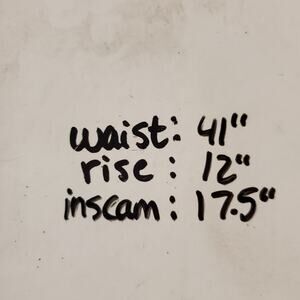 waist: 41"
rise: 12"
inseam: 17.5"